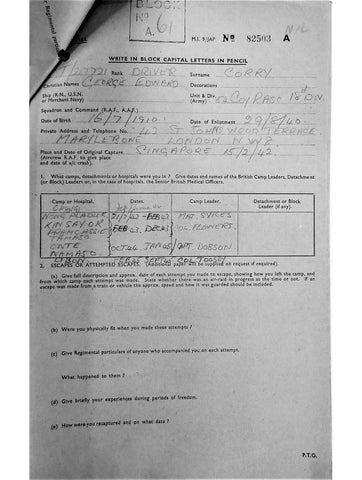 BLOCK
No
A. 61
NIL
M.I. 9/JAP No 82503 A
WRITE IN BLOCK CAPITAL LETTERS IN PENCIL
Rank DRIVER Surname CORRY
Christian Names GEORGE EDWARD Decorations
Ship (R.N., U.S.N. or Merchant Navy) Unit & Div. (Army) COY RASC 18th DIV
Squadron and Command (R.A.F., A.A.F.)
Date of Birth 16/7/1910 Date of Enlistment 29/8/40
Private Address and Telephone No. 42 ST JOHNS WOOD TERRACE
MARYLEBONE LONDON N W 8
Place and Date of Original Capture SINGAPORE 15/2/42
(Aircrew R.A.F. to give place
and date of a/c crash).
1. What camps, detachments or hospitals were you in ? Give dates and names of the British Camp Leaders, Detachment
(or Block) Leaders or, in the case of hospitals, the Senior British Medical Officers.
Camp or Hospital. Dates. Camp Leader. Detachment or Block Leader (if any).
CHANGI
NONG PLADUK FEB 43 MAJ. SYKES
KINSAYOR FEB 43. DEC 43 FLOWERS.
TAMASO
ONTE OCT 44 JAN 45 CAPT. DOBSON
NAMASO
UBON SEPT 45 COL TOOSEY
2. ESCAPES OR ATTEMPTED ESCAPES. (Additional paper will be supplied on request if required).
(a) Give full description and approx. date of each attempt you made to escape, showing how you left the camp, and
from which camp each attempt was made. State whether there was an air-raid in progress at the time or not. If an
escape was made from a train or vehicle the approx. speed and how it was guarded should be included.
(b) Were you physically fit when you made these attempts ?
(c) Give Regimental particulars of anyone who accompanied you on each attempt.
What happened to them ?
(d) Give briefly your experiences during periods of freedom.
(e) How were you recaptured and on what date ?
P.T.O.